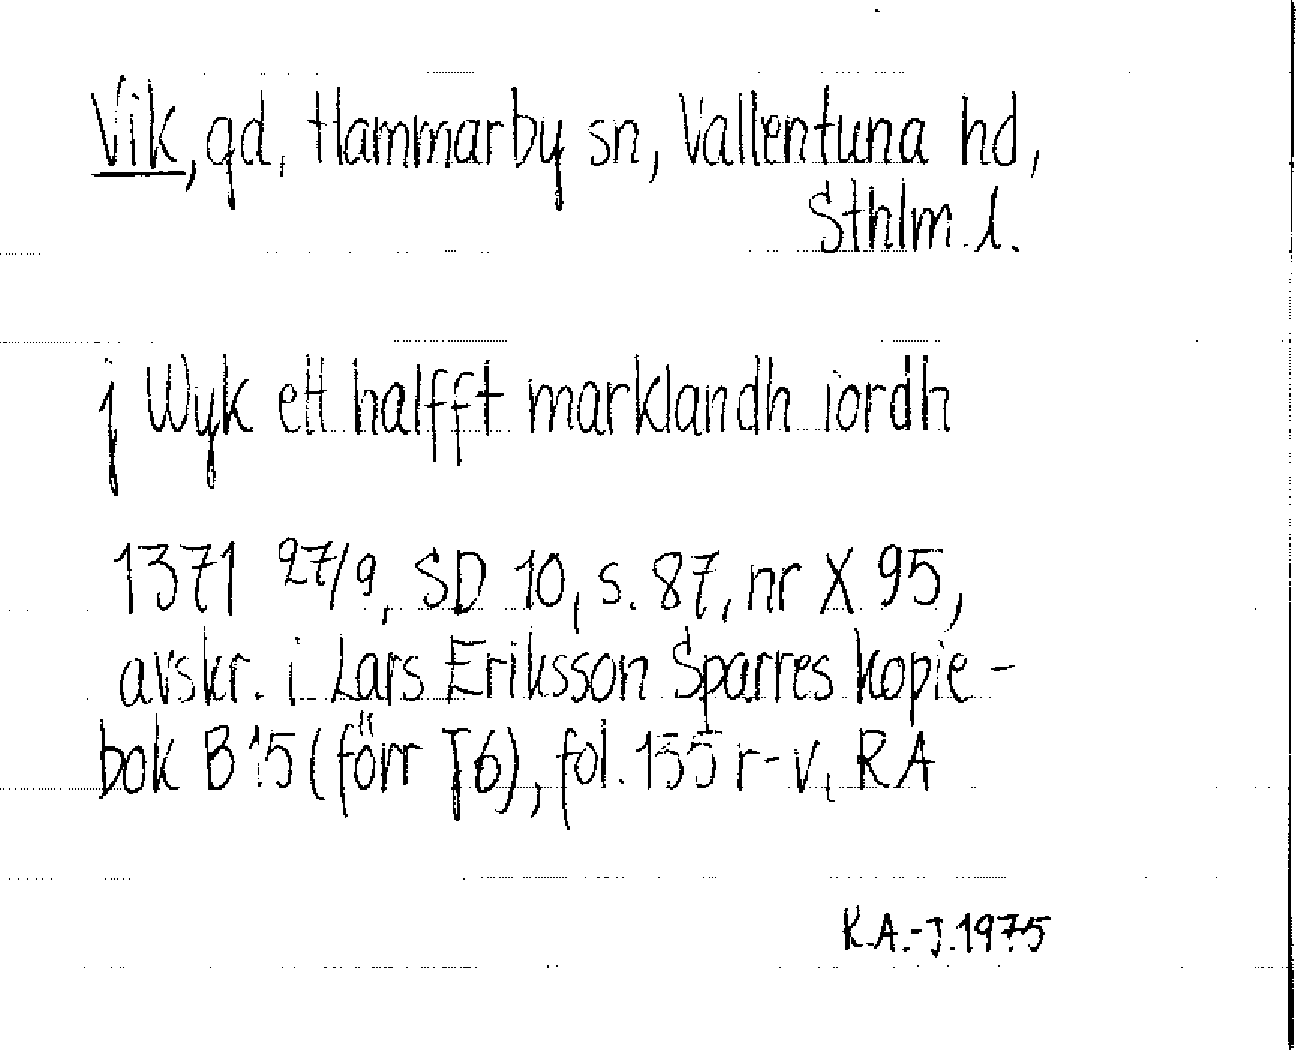 Vik, gd, Hammarby sn, Vallentuna hd,
Sthlm l.
j Wyk ett halfft marklandh iordh
1371 27/9, SD 10, s. 87, nr X 95,
avskr. i Lars Eriksson Sparres kopie-
bok B 15 (förr T6), fol. 155 r-v, RA
K.A.-J. 1975